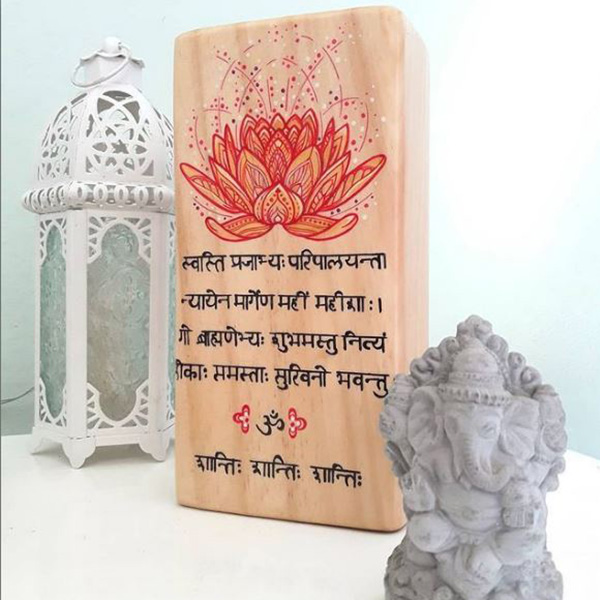 स्वस्ति प्रजाभ्यः परिपालयन्ता
न्यायेन मार्गेण महीं महीशाः।
गो ब्राह्मणेभ्यः शुभमस्तु नित्यं
समस्ताः सुखिनो भवन्तु
ॐ
शान्तिः शान्तिः शान्तिः